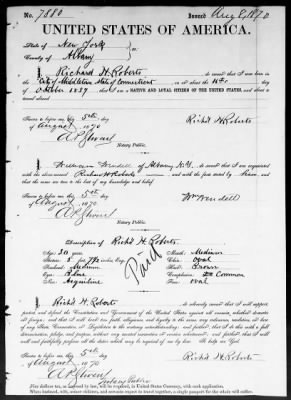 No. 7880 Issued Aug 8, 1870
UNITED STATES OF AMERICA.
State of New York
County of Albany
I, Richard H. Roberts do swear that I was born in the
City of Middletown State of Connecticut on or about the 14th day of
October 1837 that I am a NATIVE AND LOYAL CITIZEN OF THE UNITED STATES, and about to
travel abroad
Sworn to before me this 5th day
of August 1870
Rich'd H Roberts
Notary Public.
I, William Wendell of Albany N.Y. do swear that I am acquainted
with the above-named Richard H. Roberts and with the facts stated by him, and
that the same are true to the best of my knowledge and belief.
Sworn to before me this 5th day
of August 1870
Wm Wendell
Notary Public.
Description of Rich'd H. Roberts
Age: 30 years
Mouth: Medium
Stature: 5 feet 7 1/2 inches, Eng.
Chin: oval
Forehead: Medium
Hair: Brown
Eyes: Blue
Complexion: Common
Nose: Aquiline
Face: oval
Paid
I, Rich'd H. Roberts do solemnly swear that I will support,
protect, and defend the Constitution and Government of the United States against all enemies, whether domestic
or foreign; and that I will bear true faith, allegiance, and loyalty to the same, any ordinance, resolution, or law
of any State, Convention, or Legislature to the contrary notwithstanding; and further, that I do this with a full
determination, pledge, and purpose, without any mental reservation or evasion whatsoever; and further, that I will
well and faithfully perform all the duties which may be required of me by law. So help me God.
Sworn to before me this 5th day
of August 1870
Rich'd H Roberts
Notary Public